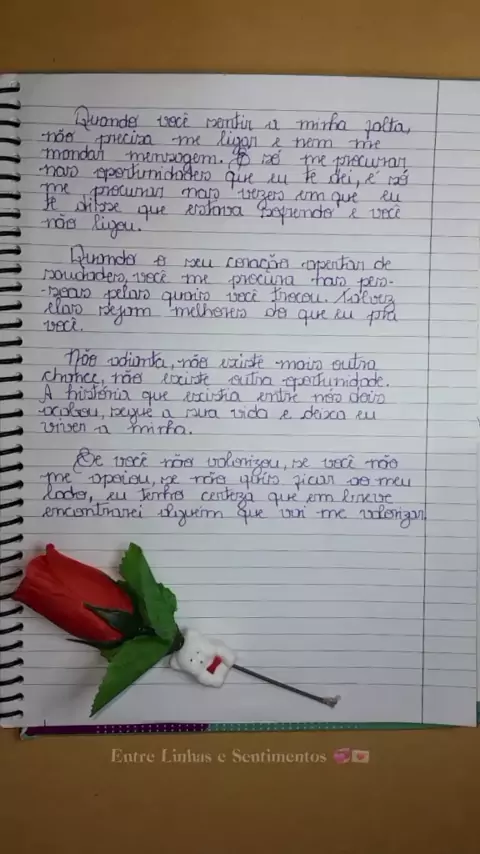 Quando você sentir a minha falta,
não precisa me ligar e nem me
mandar mensagem. É só me procurar
nas oportunidades que eu te dei, é só
me procurar nas vezes em que eu
te disse que estava sofrendo e você
não ligou.
Quando o seu coração apertar de
saudades, você me procura nas pes-
soas pelas quais você trocou. Talvez
elas sejam melhores do que eu pra
você.
Não adianta, não existe mais outra
chance, não existe outra oportunidade.
A história que existia entre nós dois
acabou, segue a sua vida e deixa eu
viver a minha.
Se você não valorizou, se você não
me apoiou, se não quis ficar ao meu
lado, eu tenho certeza que em breve
encontrarei alguém que vai me valorizar
Entre Linhas e Sentimentos 💞💌